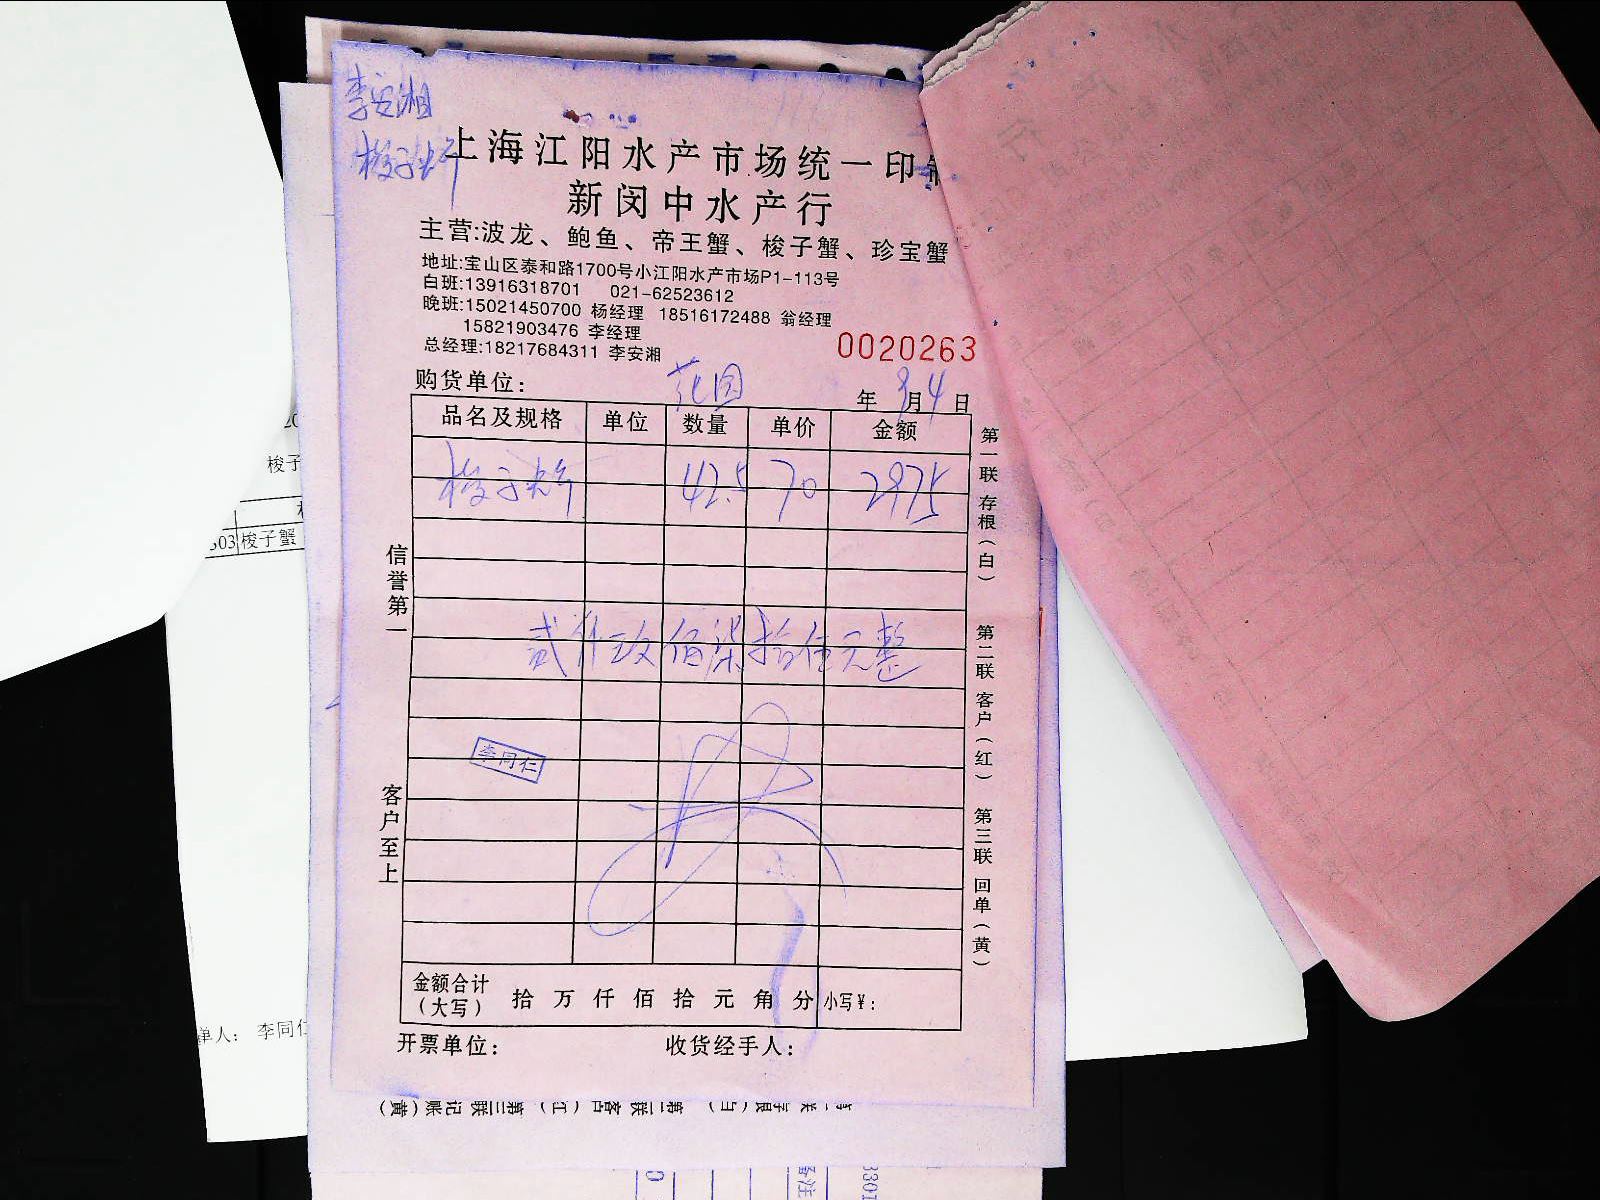 李安湘
梭子蟹
上海江阳水产市场统一印制
新闵中水产行
主营:波龙、鲍鱼、帝王蟹、梭子蟹、珍宝蟹
地址:宝山区泰和路1700号小江阳水产市场P1-113号
白班:13916318701 021-62523612
晚班:15021450700 杨经理 18516172488 翁经理
15821903476 李经理
总经理:18217684311 李安湘
0020263
购货单位: 花园 年 3月4日
品名及规格 单位 数量 单价 金额
梭子蟹 42.5 70 2975
贰仟玖佰柒拾伍元整
李同仁
信誉第一
客户至上
第一联 存根(白)
第二联 客户(红)
第三联 回单(黄)
金额合计(大写) 拾 万 仟 佰 拾 元 角 分 小写¥:
开票单位: 收货经手人:
梭子
503 梭子蟹
单人: 李同仁
第三联 记账(黄)
第二联 客户(红)
备注